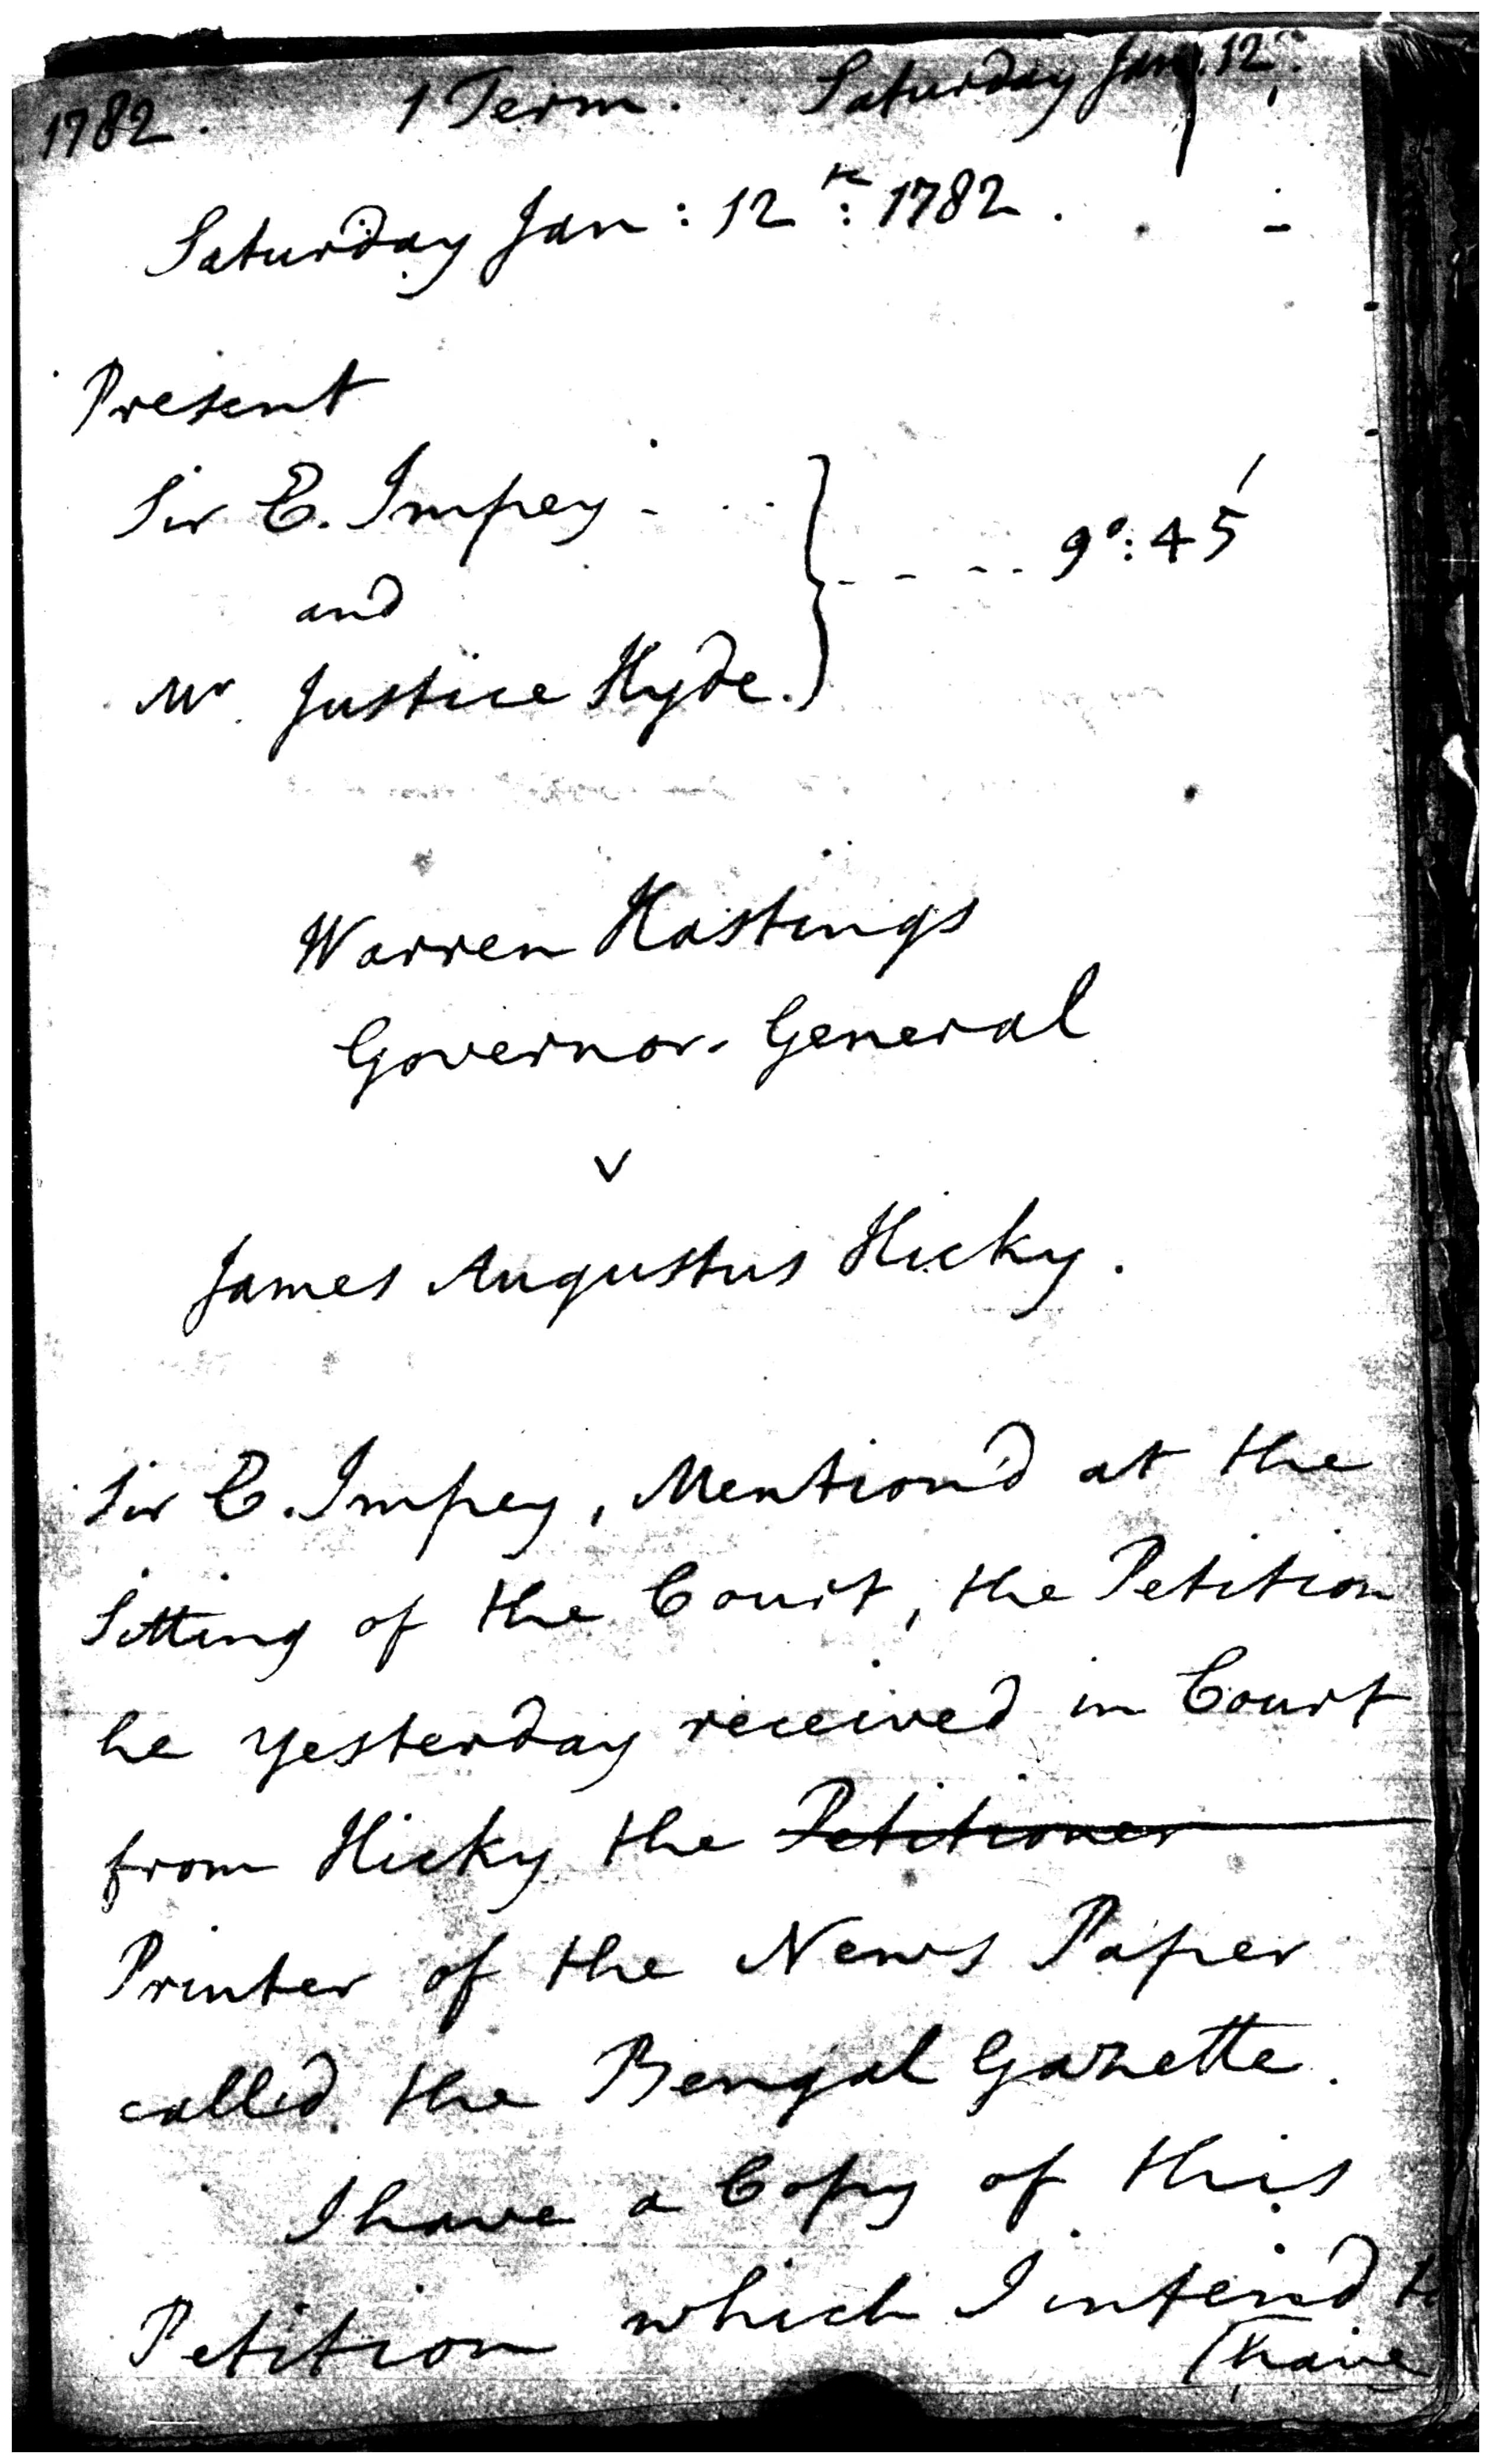 1782. 1 Term. Saturday Jany. 12th.
Saturday Jan: 12th: 1782.
Present
Sir E. Impey
and
Mr. Justice Hyde.
9°: 45'
Warren Hastings
Governor-General
v
James Augustus Hicky.
Sir E. Impey, Mention'd at the
Sitting of the Court, the Petition
he yesterday received in Court
from Hicky the Petitioner
Printer of the News Paper
called the Bengal Gazette.
I have a Copy of this
Petition which I intend to
(have